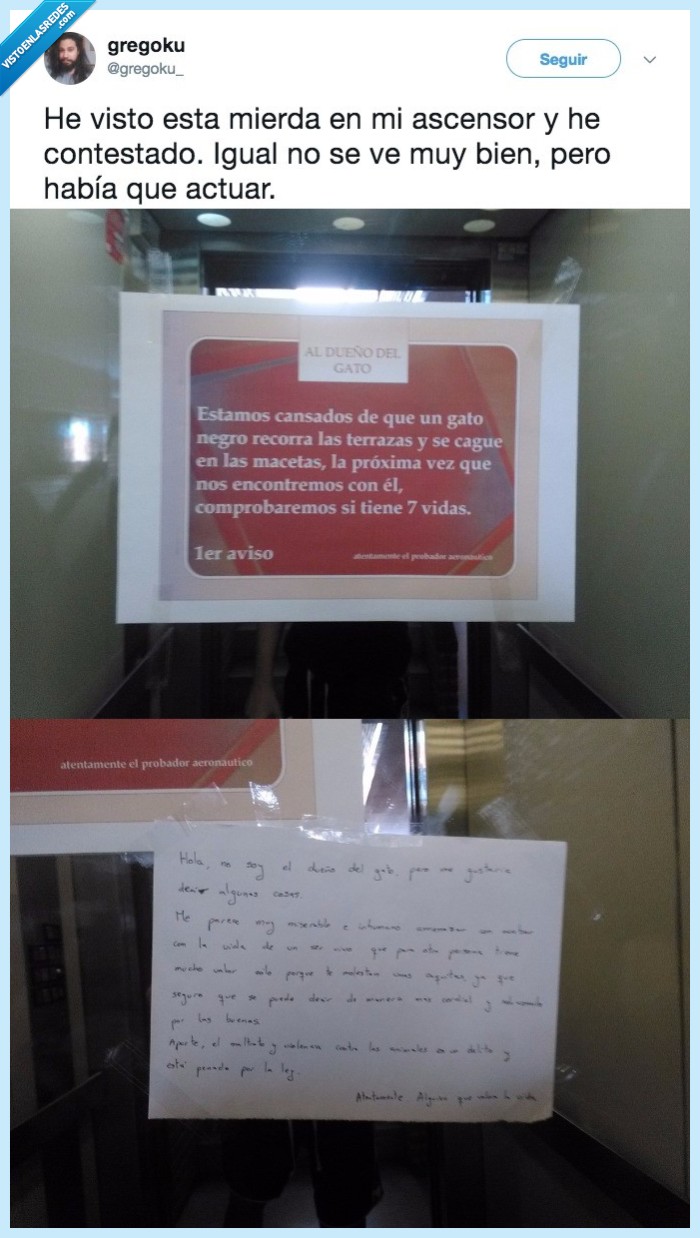 VISTOENLASREDES
.com
gregoku
@gregoku_
Seguir
He visto esta mierda en mi ascensor y he
contestado. Igual no se ve muy bien, pero
había que actuar.
AL DUEÑO DEL
GATO
Estamos cansados de que un gato
negro recorra las terrazas y se cague
en las macetas, la próxima vez que
nos encontremos con él,
comprobaremos si tiene 7 vidas.
1er aviso
atentamente el probador aeronáutico
atentamente el probador aeronáutico
Hola, no soy el dueño del gato, pero me gustaría
decir algunas cosas.
Me parece muy miserable e inhumano amenazar con acabar
con la vida de un ser vivo que para otra persona tiene
mucho valor solo porque te molestan unas caquitas, ya que
seguro que se puede decir de manera más cordial y
por las buenas.
Aparte, el maltrato y violencia contra los animales es un delito y
está penado por la ley.
Atentamente Alguien que valora la vida